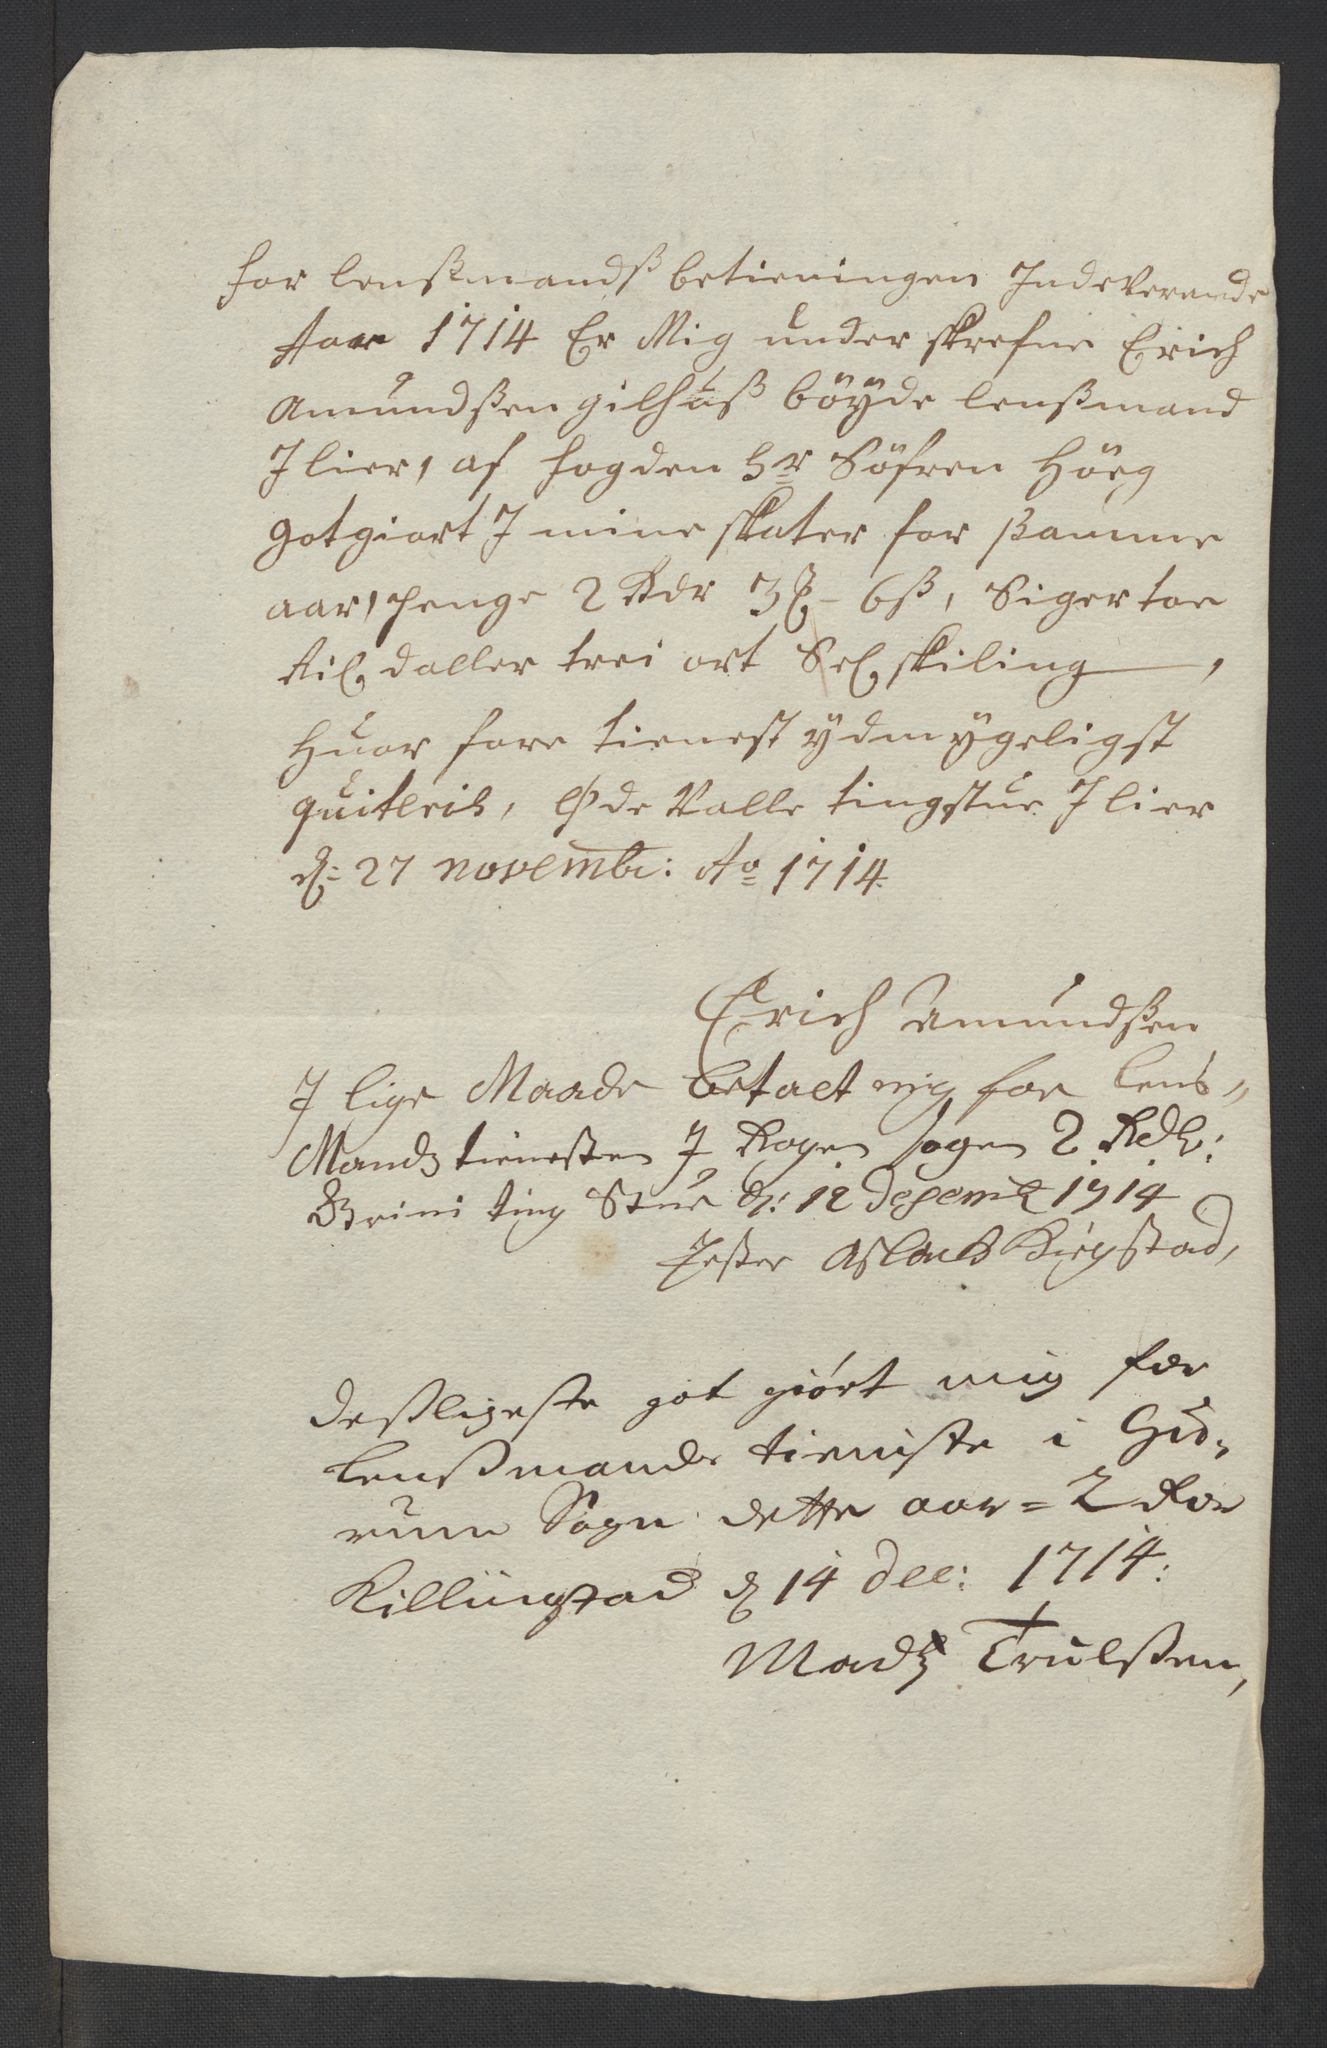 for lenßmandß betieningen Indeverende
Aaar 1714 Er Mig under skrefne Erich
Amundßen gilhuß böyde lenßmand
I lier, af fogden hr Söfren Höeg
gotgiort I mine skater for ßamme
aar, penge 2 Rdr 3 - 6ß, Siger toe
daller trei ort skiling,
huor fore tienest ydmygeligst
quiteris, valle tingstue I lier
d: 27 novembr: Ao 1714.
Erich Amundßen
I lige Maade betalt mig for Lens„
Mandz tienesten I Rogen sogen 2 Rdl:
Grini ting Stue d: 12 desemb 1714
Peder Aslack Kiegstad,
deßligeste got giört mig for
Lenßmands tieniste i Hu„
rum Sogn dette aar = 2 Rdr
Killingstad d 14 Dec: 1714:
Madtz Trulßen,